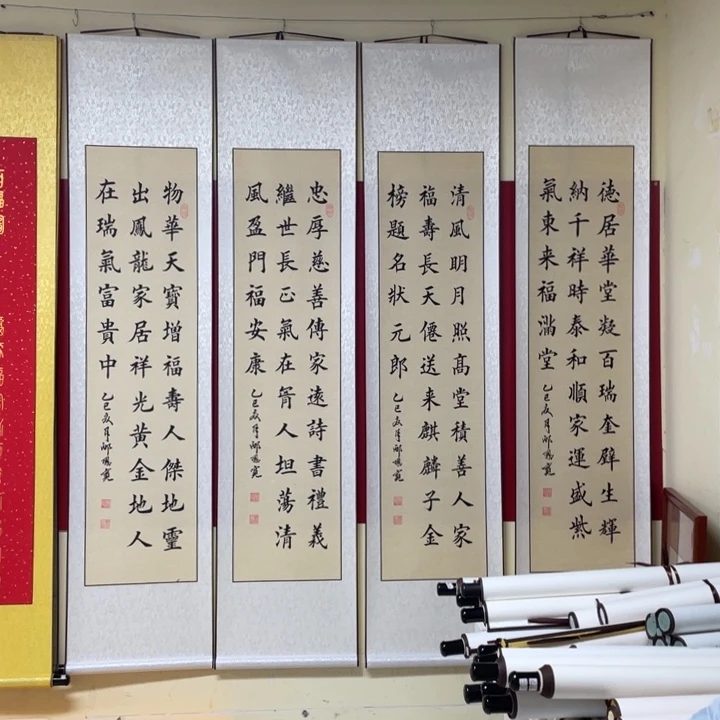 德居華堂凝百瑞奎壁生輝
納千祥時泰和順家運盛紫
氣東来福滿堂
乙巳
清風明月照高堂積善人家
福壽長天僊送来麒麟子金
榜題名狀元郎
乙巳
忠厚慈善傳家遠詩書禮義
繼世長正氣在胷人坦蕩清
風盈門福安康
乙巳
物華天寶增福壽人傑地靈
出鳳龍家居祥光黃金地人
在瑞氣富貴中
乙巳